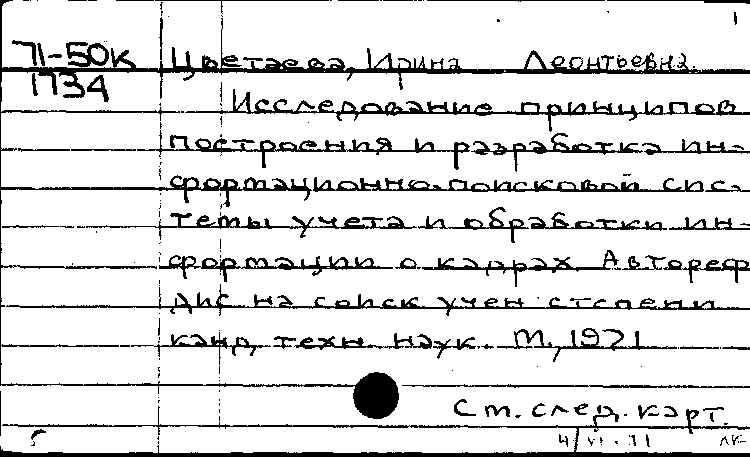 71-50к Цветаева, Ирина Леонтьевна.
1734
Исследование принципов
построения и разработка ин-
формационно-поисковой сис-
темы учета и обработки ин-
формации о кадрах. Автореф
дис на соиск учен степени
канд. техн. наук. М., 1971
См. след. карт.
4/VI-71